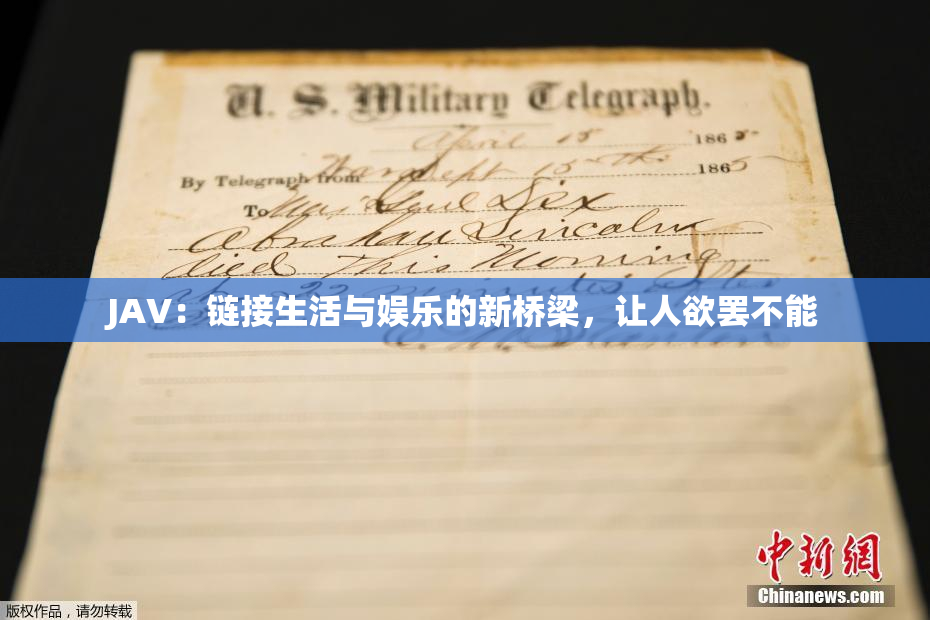 U. S. Military Telegraph.
April 15 1865-
By Telegraph from War Dept 15th 1865
To Maj Genl Dix
Abraham Lincoln
died This Morning
22 minutes after
JAV：链接生活与娱乐的新桥梁，让人欲罢不能
E. M. Stanton
中新網
Chinanews.com
版权作品，请勿转载